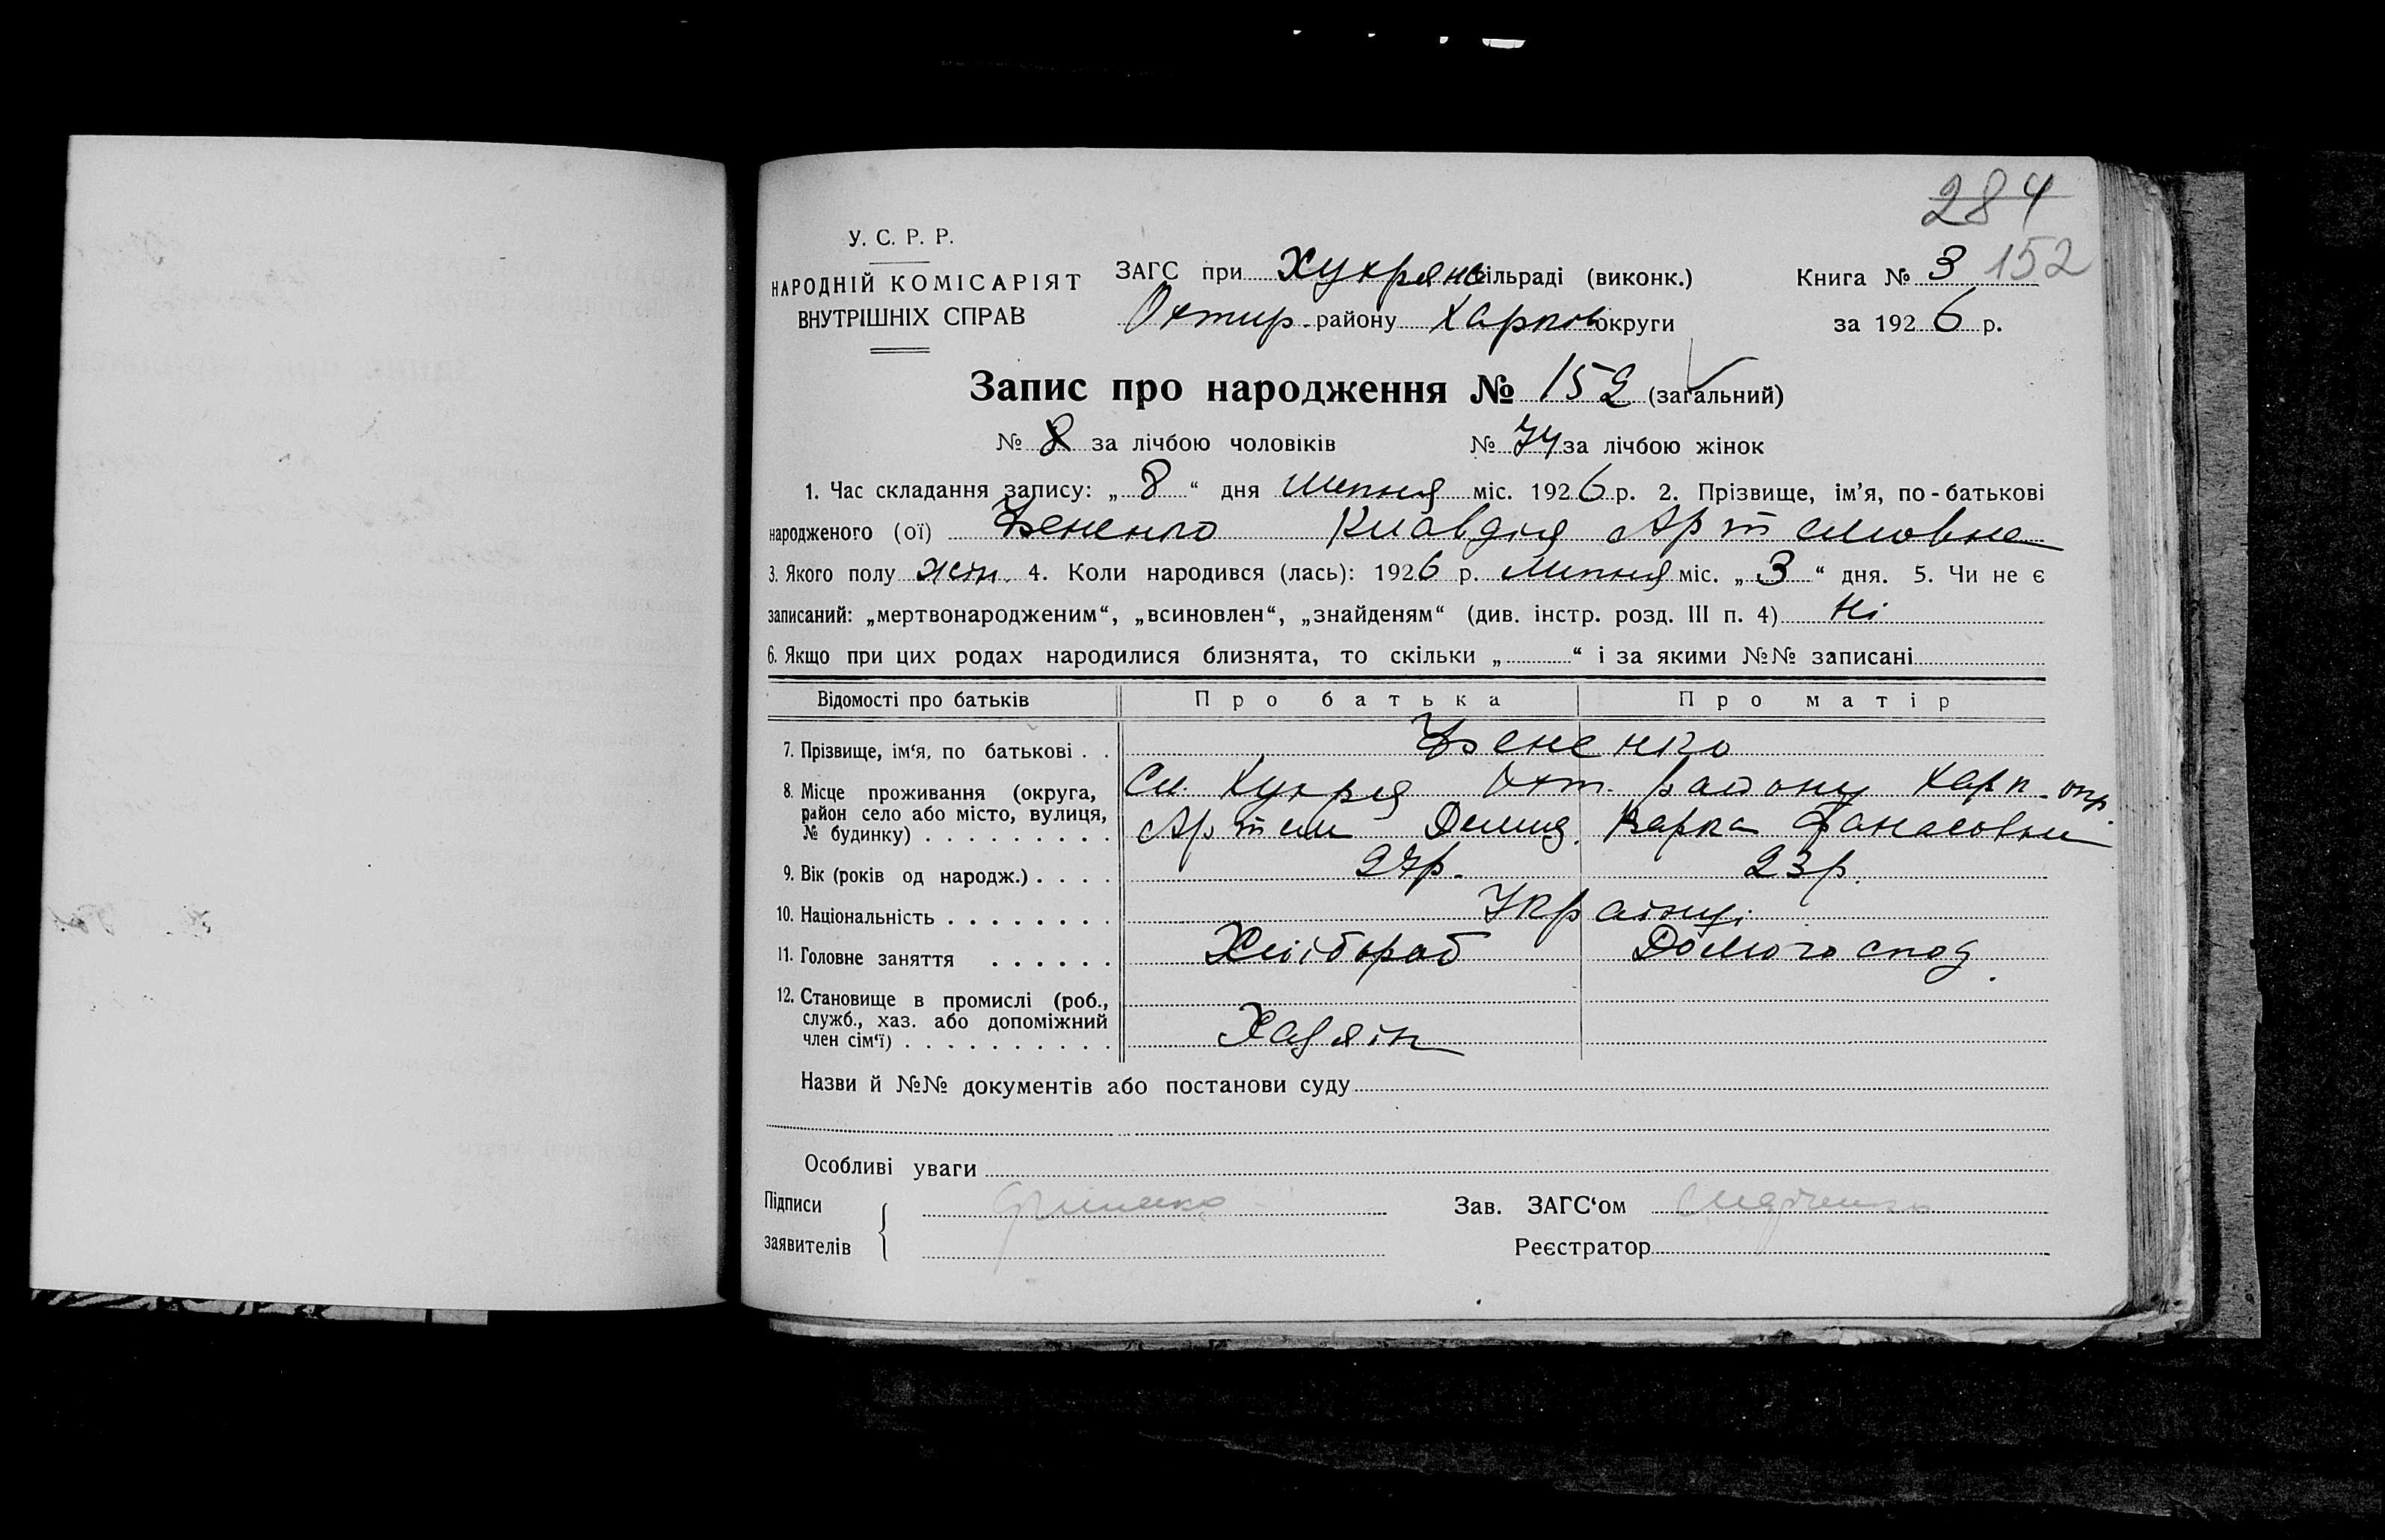 284
У. С. Р. Р.
НАРОДНІЙ КОМІСАРІЯТ
ВНУТРІШНІХ СПРАВ
ЗАГС при Хухрянс сільраді (виконк.)
Охтир. району Харков округи
Книга № 3 152
за 1926 р.
Запис про народження № 152 (загальний)
№ 8 за лічбою чоловіків № 74 за лічбою жінок
1. Час складання запису: „ 8 “ дня липня міс. 1926 р. 2. Прізвище, ім’я, по-батькові
народженого (ої) Клавдія Артемовна
3. Якого полу жін. 4. Коли народився (лась): 1926 р. липня міс. „ 3 “ дня. 5. Чи не є
записаний: „мертвонародженим“, „всиновлен“, „знайденям“ (див. інстр. розд. III п. 4) Ні
6. Якщо при цих родах народилися близнята, то скільки „ “ і за якими №№ записані
Відомості про батьків Про батька Про матір
7. Прізвище, ім‘я, по батькові . .
8. Місце проживання (округа,
район село або місто, вулиця,
№ будинку) . . . . . . . . .
Сл. Хухря Охт. району Харк. окр.
Артем Демид. Варка Фанасовна
9. Вік (років од народж.) . . . . 27р. 23р.
10. Національність . . . . . . . . Українці
11. Головне заняття . . . . . . Хлібороб Домогоспод.
12. Становище в промислі (роб.,
служб., хаз. або допоміжний
член сім‘ї) . . . . . . . . . . Хазяїн
Назви й №№ документів або постанови суду
Особливі уваги
Підписи
заявителів
Зав. ЗАГС‘ом
Реєстратор